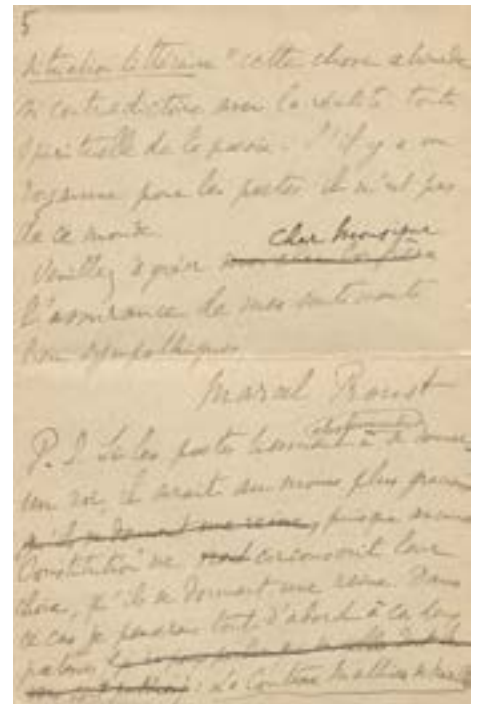 5
situation littéraire" cette chose absurde
en contradiction avec la réalité toute
spirituelle de la poésie. S'il y a un
royaume pour les poètes il n'est pas
de ce monde.
Cher Monsieur
Veuillez agréer
l'assurance de mes sentiments
bien sympathiques
Marcel Proust
P. S. Si les poètes tiennent à se donner
un roi, il serait au moins plus gracieux
qu'ils se donnent une reine, puisque aucune
Constitution ne circonscrit leur
choix, qu'ils se donnent une reine. Dans
ce cas je penserais tout d'abord à
: La Comtesse Mathieu de